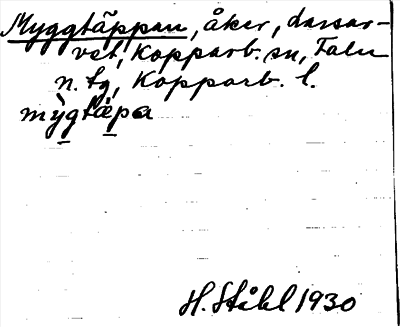 Myggtäppan, åker, darsar-
vet, Kopparb. sn, Falu
n. tg, Kopparb. l.
mỳgtäpa
H. Ståhl 1930